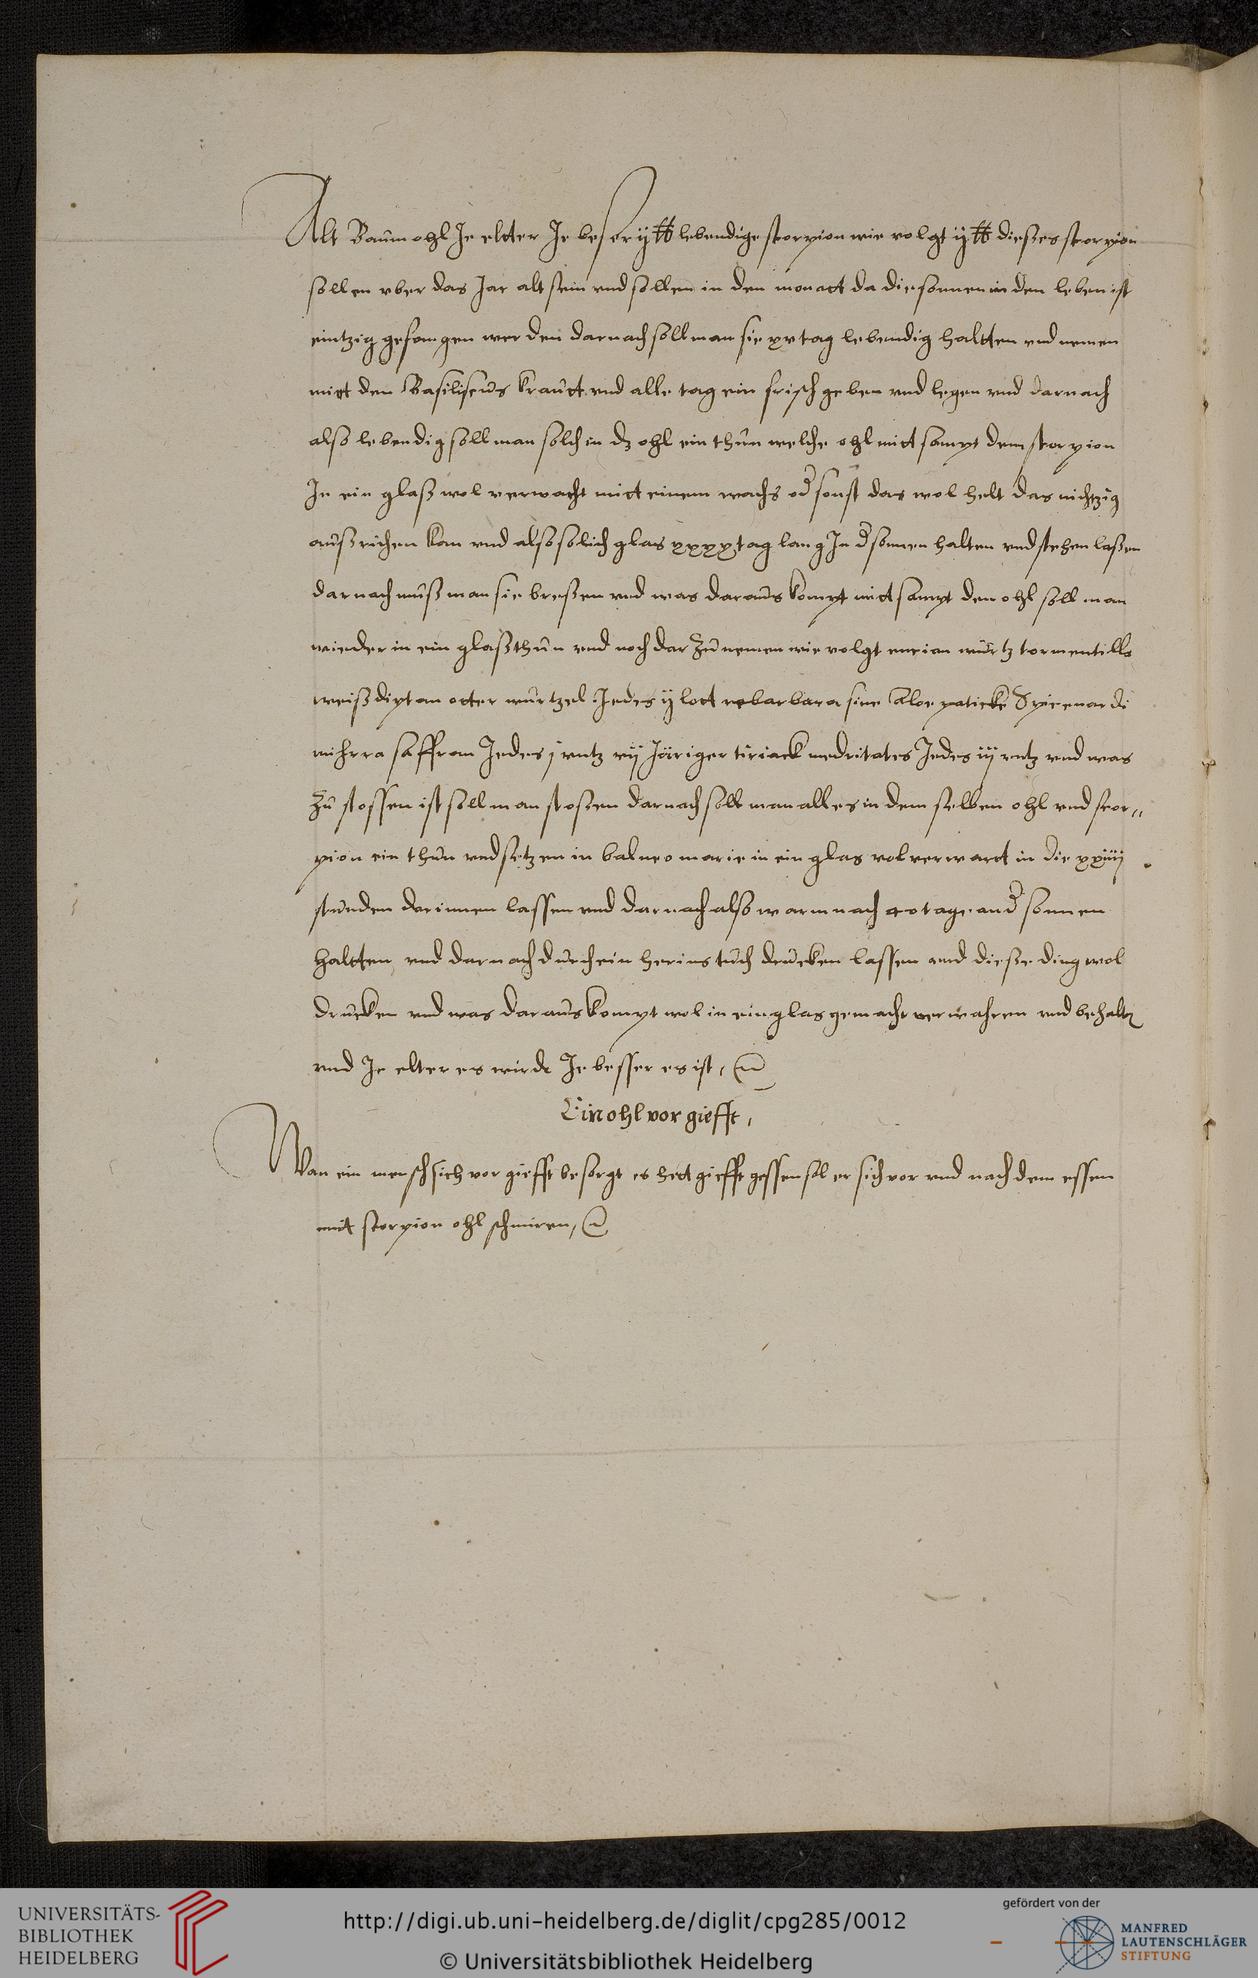 Alt Baumohl Je eltter Je beser ij ℔ lebendige storpion wie volgt ij ℔ dießes storpion
sollen vber das Jar alt sein vnd sollen in den monatt da die sonnen in den leben ist
eintzig gefangen werden darnach soll man sie xv tag lebendig haltten vnd nemen
mitt den Basiliscus krautt vnd alle tag ein frisch geben vnd legen vnd darnach
also lebendig soll man solch in dz ohl ein thun welche ohl mitt sampt dem storpion
In ein glaß wol verwacht mitt einem wachs od sonst das wol helt das nichtzig
außrichen kan vnd also solich glas xxxx tag lang In d sonnen halten vnd stehen laßen
darnach muß man sie breßen vnd was daraus kompt mitt sampt den ohl soll man
wieder in ein glaß thun vnd noch dar zu nemen wie volgt encian wurtz tormentills
weiß diptan otter wurtzel Jedes ij lott rebarbara fine Aloe paticke Spicenardi
mihrra saffran Jedes j untz vij Järiger tiriack medritates Jedes iij untz vnd was
zu stossen ist soll man stoßen darnach soll man alles in dem selben ohl vnd scor„
pion ein thun vnd setzen in balneo marie in ein glas vol verwartt in die xxiiij
stunden darinnen lassen vnd darnach also warm nach 40 tage an d sonnen
haltten vnd darnach durch ein herins tuch drucken lassen vnd dieße ding wol
drucken vnd was daraus kompt wol in ein glas gemacht verwahren vnd behalten
vnd Je elter es wirdt Je besser es ist,
Ein ohl vor giefft,
Wan ein mensch sich vor giefft besorgt es hett giefft gessen sol er sich vor vnd nach dem essen
mit storpion ohl schmiren,
UNIVERSITÄTS-
BIBLIOTHEK
HEIDELBERG
http://digi.ub.uni-heidelberg.de/diglit/cpg285/0012
© Universitätsbibliothek Heidelberg
gefördert von der
MANFRED
LAUTENSCHLÄGER
STIFTUNG